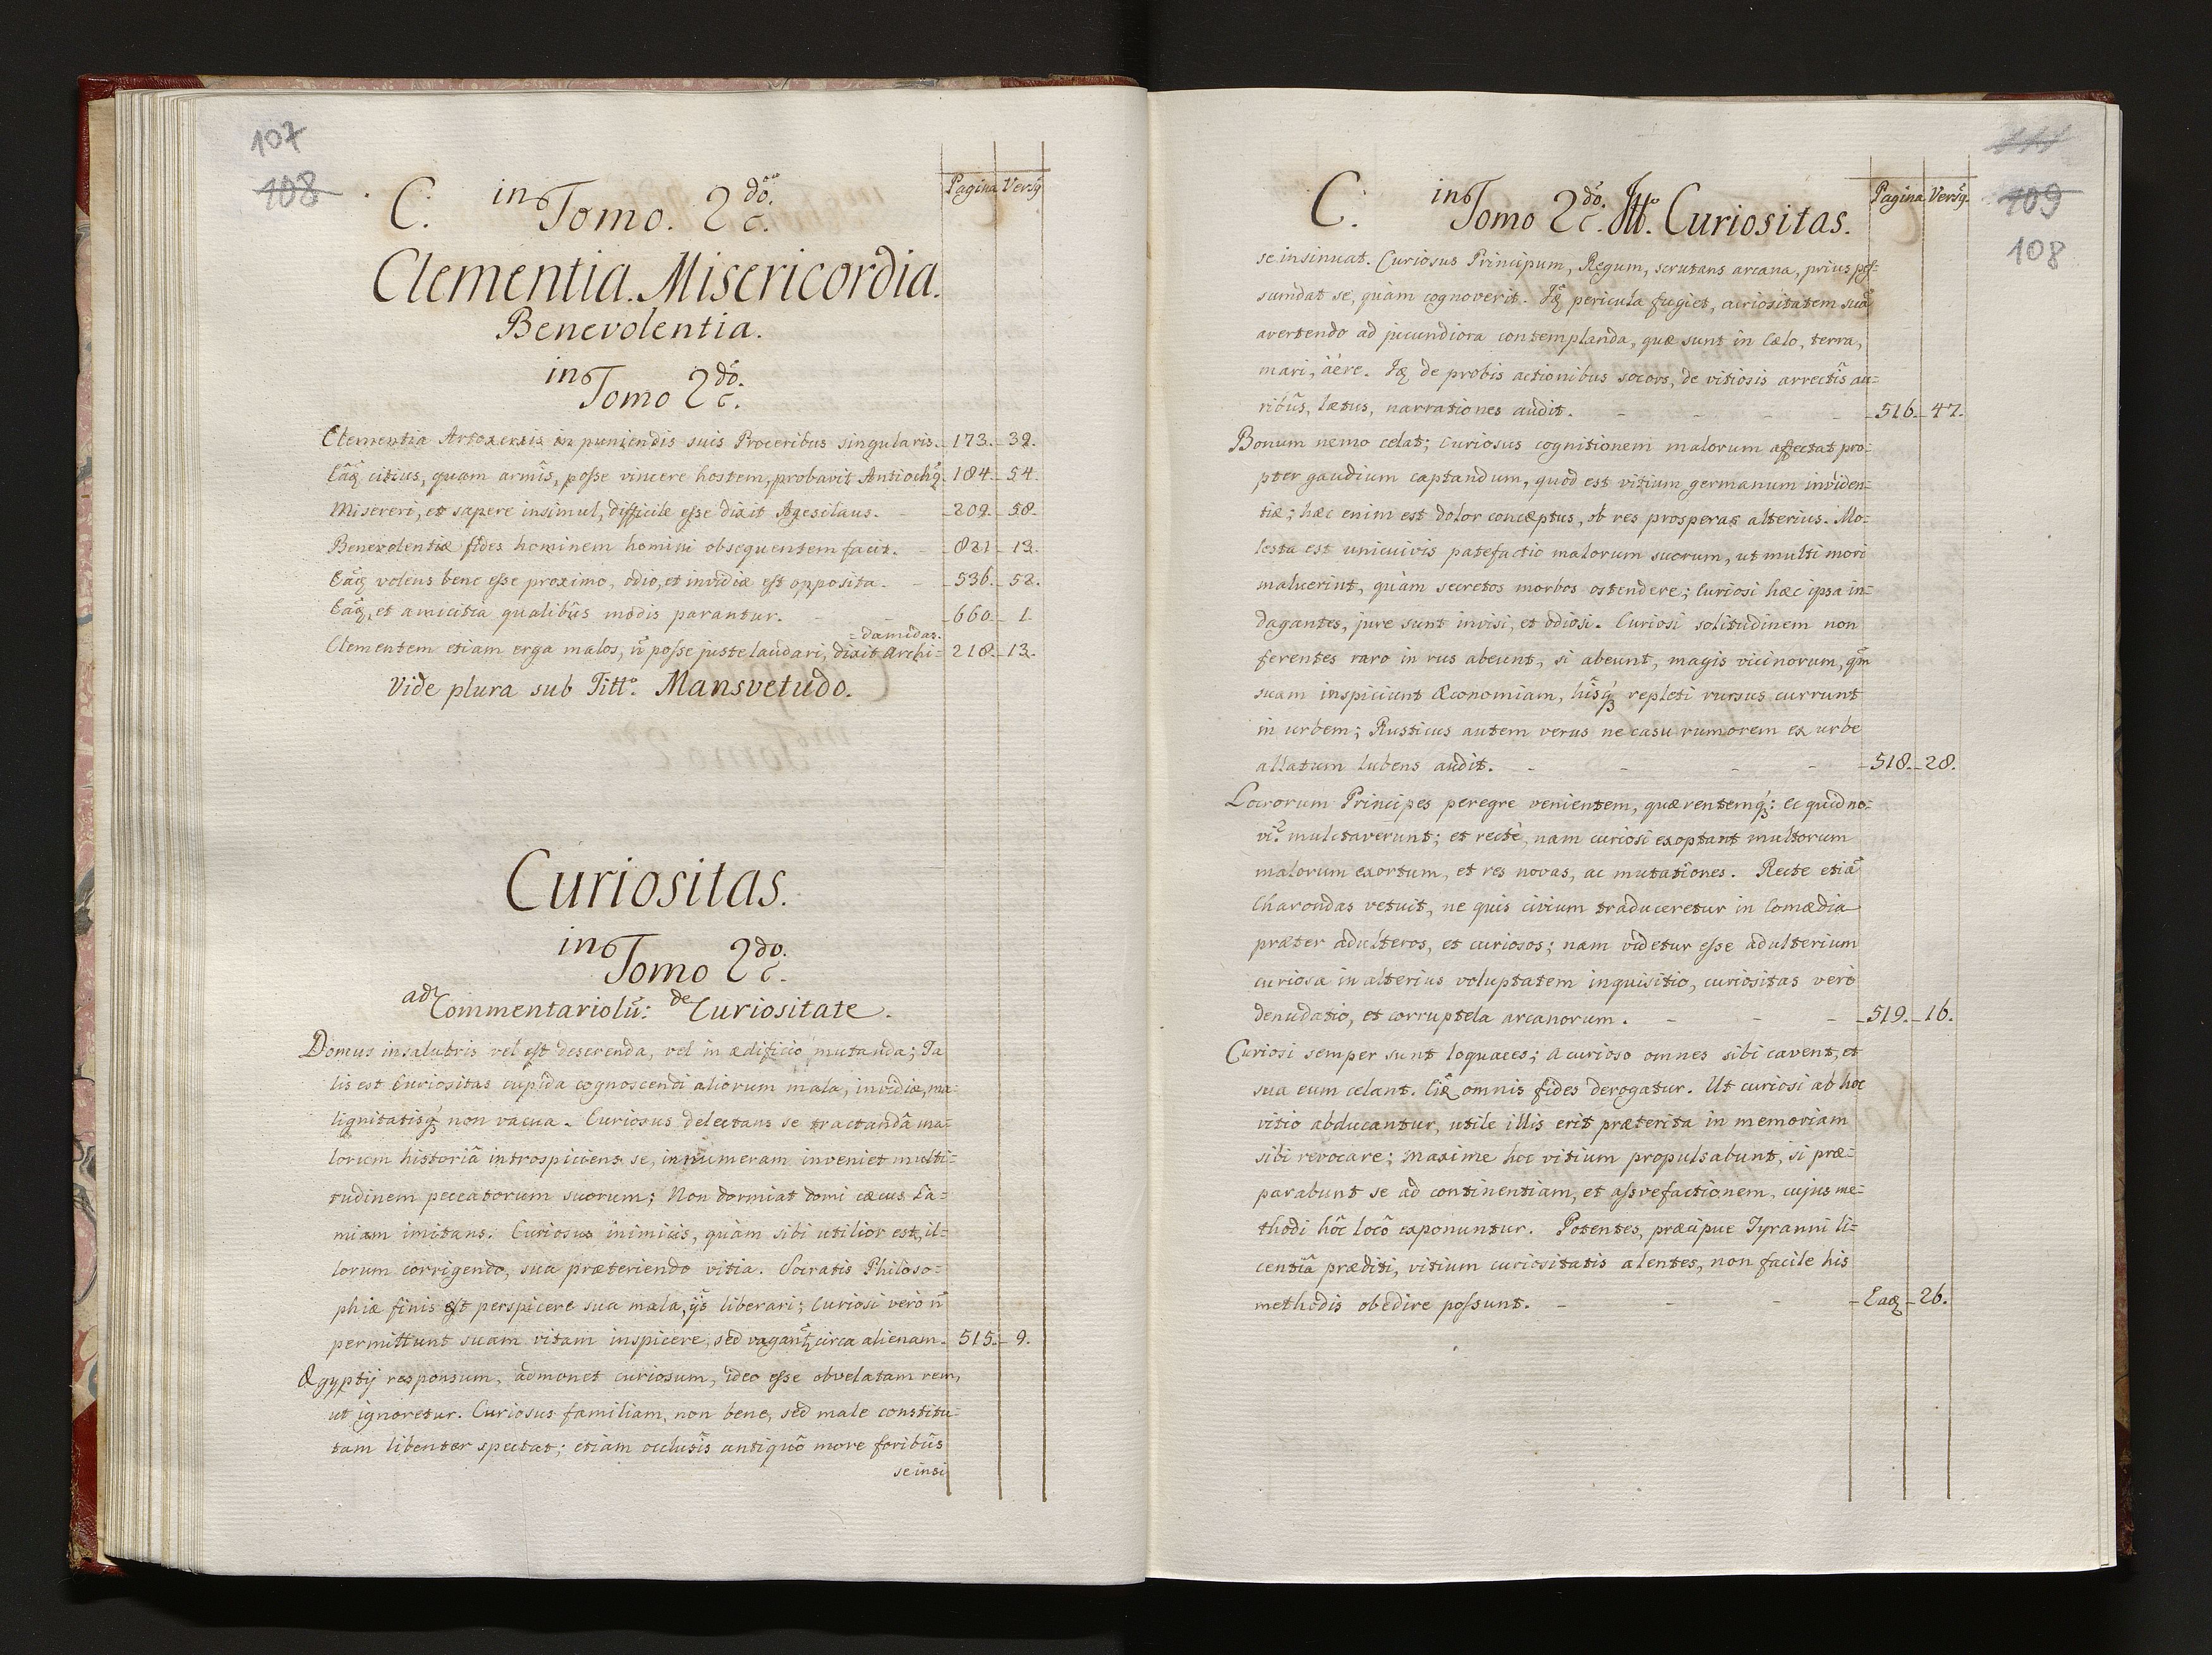 107
108
C. in Tomo. 2do.
Pagina Versq
Clementia. Misericordia.
Benevolentia.
in Tomo 2do.
Clementia Artoxerxis in puniendis suis Proceribus singularis. 173. 39.
Eâq citius, quam armîs, posse vincere hostem, probavit Antiochq. 184. 54.
Misereri, et sapere insimul, difficile esse dixit Agesilaus. 209. 58.
Benevolentiæ fides hominem homini obsequentem facit. 821. 13.
Eâq volens bene esse proximo, odio, et invidiæ est opposita. 536. 52.
Eâq, et amicitia qualibûs modis parantur. 660. 1.
=damidas.
Clementem etiam erga malos, n̄ posse juste laudari, dixit Archi= 218. 13.
Vide plura sub Titto. Mansvetudo.
Curiositas.
in Tomo 2do.
ad Commentariolū: de Curiositate.
Domus insalubris vel est deserenda, vel in ædificio mutanda; Ta
lis est Curiositas cupida cognoscendi aliorum mala, invidiæ, ma=
lignitatisq́ non vacua. Curiosus delectans se tractandâ ma=
lorum historiâ introspiciens se, innumeram inveniet multi=
tudinem peccatorum suorum; Non dormiat domi cæcus La=
miam imitans. Curiosus inimicis, quàm sibi utilior est, il=
lorum corrigendo, sua præteriendo vitia. Socratis Philoso=
phiæ finis est perspicere sua mala, ijs liberari; Curiosi verò n̄
permittunt suam vitam inspicere, sed vagant circa alienam. 515. 9.
Ægyptij responsum, admonet curiosum, ideo esse obvelatam rem,
ut ignoretur. Curiosus familiam, non bene, sed male constitu=
tam libenter spectat; etiam occlusîs antiquô more foribûs
se insi
109
108
C. in Tomo 2do. Itto. Curiositas.
Pagina Versq.
se insinuat. Curiosus Principum, Regum, scrutans arcana, prius pes=
sumdat se, quàm cognoverit. Iq pericula fugiet, curiositatem suā
avertendo ad jucundiora contemplanda, quæ sunt in Cælo, terra,
mari, àëre. Iq de probis actionibus socors, de vitiosis arrectîs au=
ribûs, lætus, narrationes audit. 516. 47.
Bonum nemo celat; Curiosus cognitionem malorum affectat pro=
pter gaudium captandum, quod est vitium germanum inviden=
tiæ; hæc enim est dolor concæptus, ob res prosperas alterius. Mo=
lesta est unicuivis patefactio malorum suorum, ut multi mori
maluerint, quàm secretos morbos ostendere; Curiosi hæc ipsa in=
dagantes, jure sunt invisi, et odiosi. Curiosi solitudinem non
ferentes raro in rus abeunt, si abeunt, magis vicinorum, qm
suam inspiciunt Œconomiam, hîsq́ repleti rursus currunt
in urbem; Rusticus autem verus ne casu rumorem ex urbe
allatum lubens audit. 518. 28.
Locrorum Principes peregre venientem, quærentemq́: ec quid no=
vi? mulctaverunt; et rectè, nam curiosi exoptant multorum
malorum exortum, et res novas, ac mutationes. Recte etiā
Charondas vetuit, ne quis civium traduceretur in Comædia
præter adulteros, et curiosos; nam videtur esse adulterium
curiosa in alterius voluptatem inquisitio, curiositas verò
denudatio, et corruptela arcanorum. 519. 16.
Curiosi semper sunt loquaces; a curioso omnes sibi cavent, et
sua eum celant. Eiq omnis fides derogatur. Ut curiosi ab hoc
vitio abducantur, utile illis erit præterita in memoriam
sibi revocare; maxime hoc vitium propulsabunt, si præ=
parabunt se ad continentiam, et assvefactionem, cujus me=
thodi hôc locô exponuntur. Potentes, præcipue Tyranni li=
centiâ præditi, vitium curiositatis alentes, non facile his
methodis obedire possunt. Eaq 26.